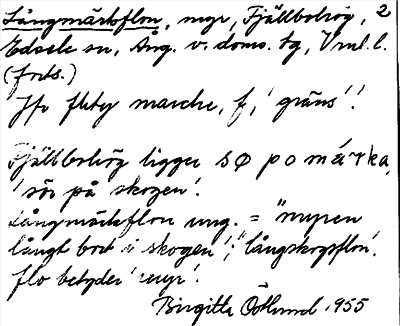 Långmärksflon, myr, Fjällbohög, 2
Edsele sn, Ång. v. doms. tg, Vnl. l.
(forts.)
Jfr fht marche, f, 'gräns'!
Fjällbohög ligger sø po márka,
'sör på skogen'.
Långmärksflon ung. = "myren
långt bort i skogen", "långskogsflon'.
flo betyder 'myr'.
Birgitta Östlund 1955